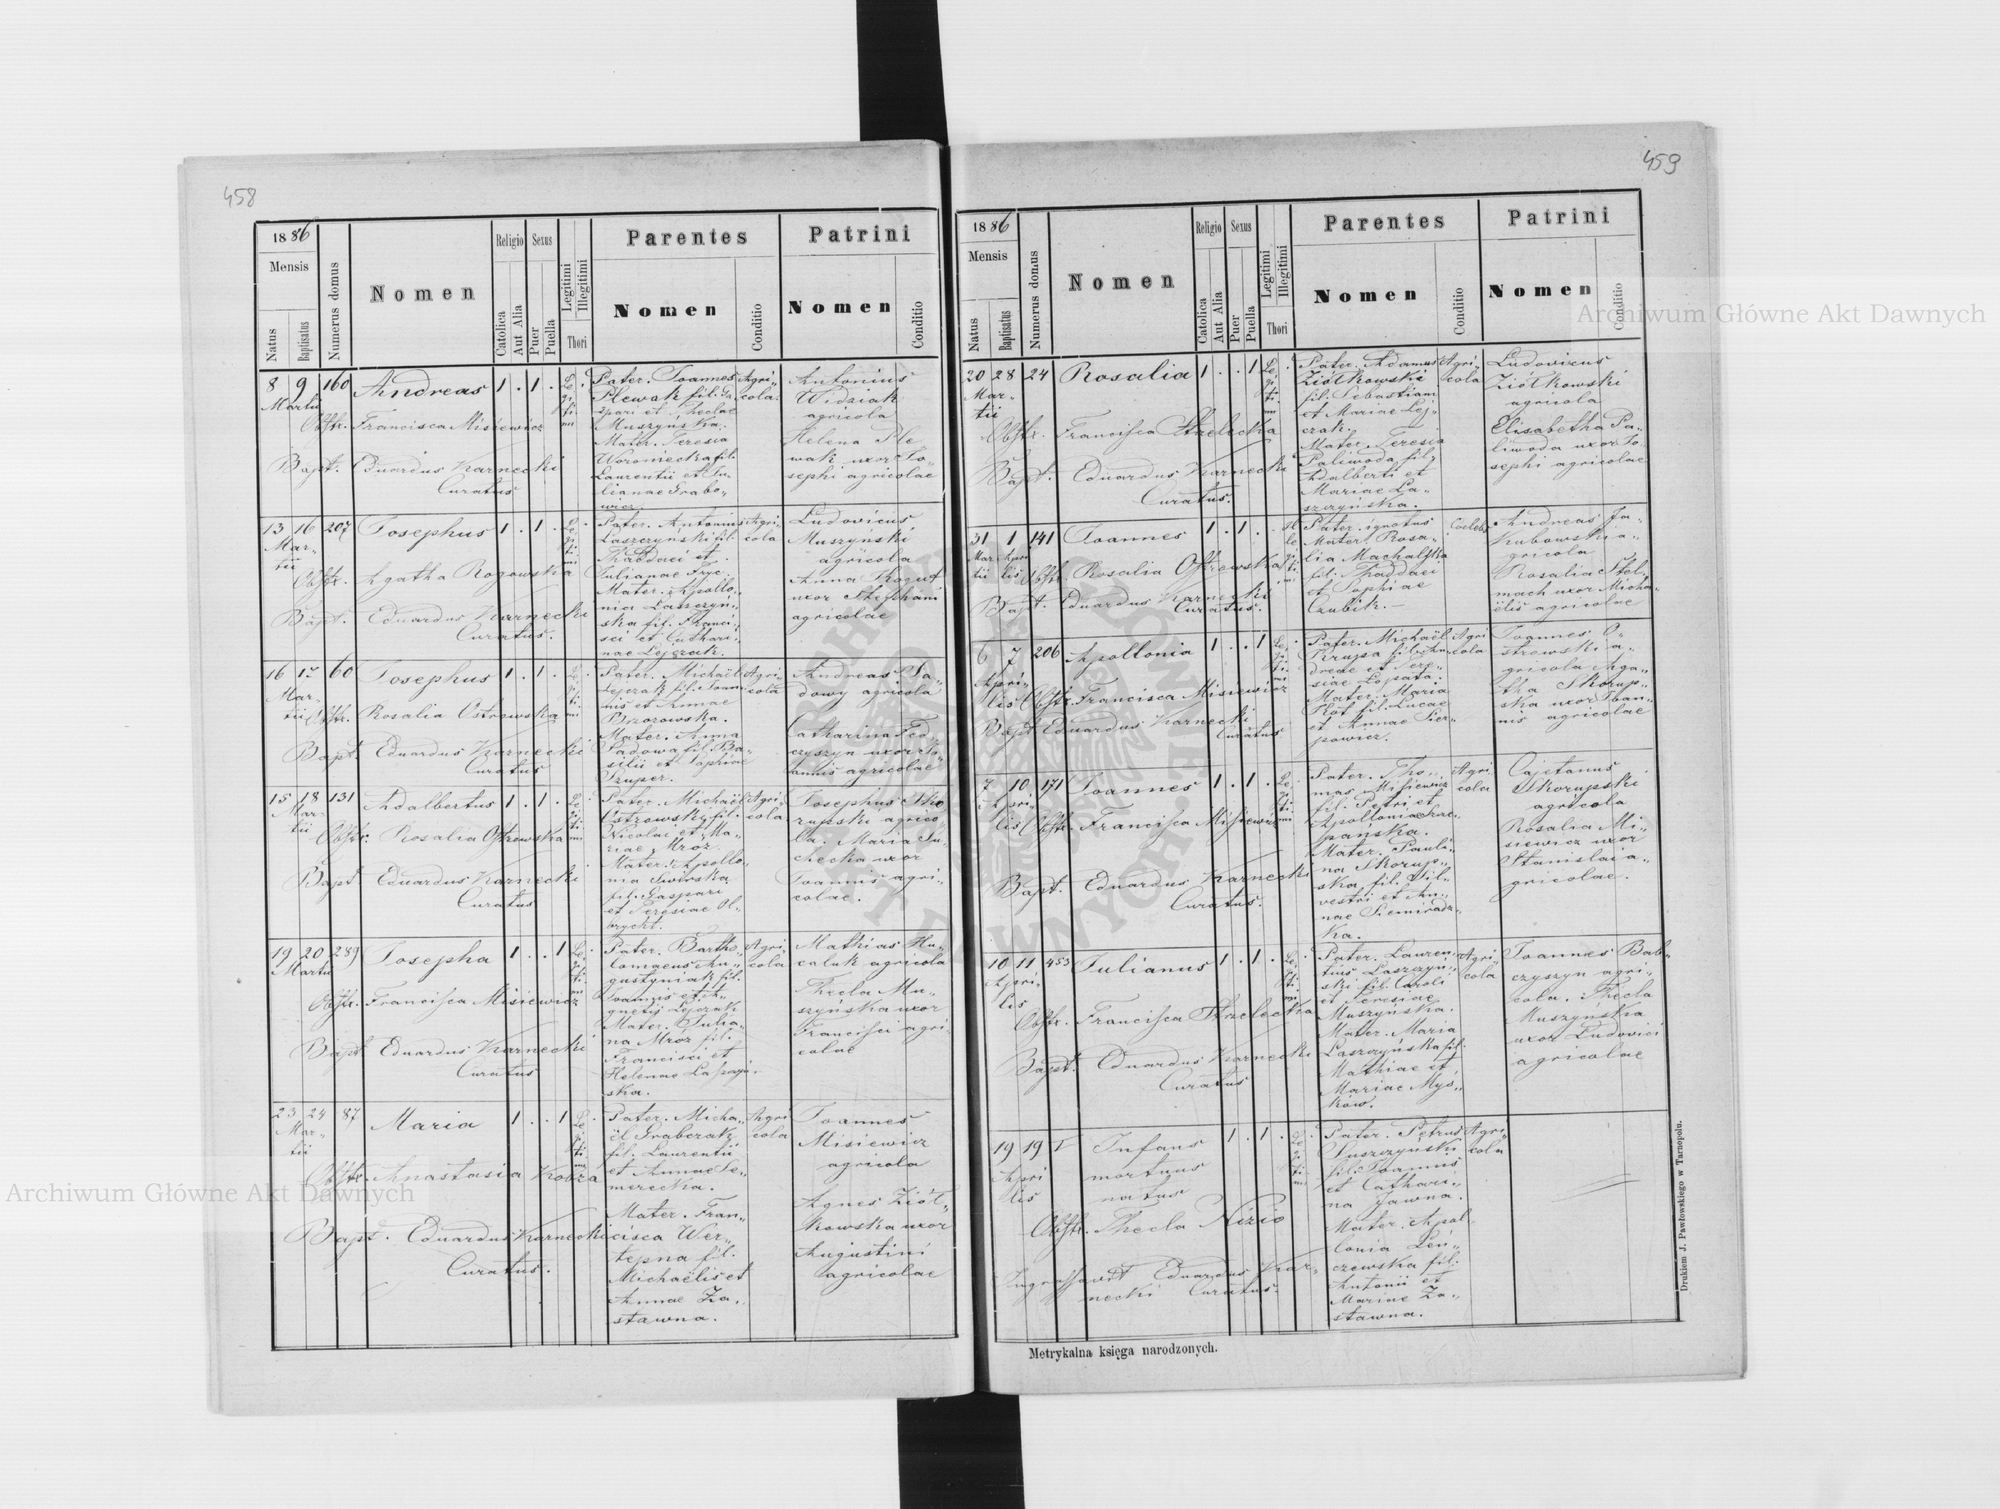 458
1886
Mensis
Natus
Baptisatus
Numerus domus
Nomen
Religio
Catolica
Aut Alia
Sexus
Puer
Puella
Legitimi
Illegitimi
Thori
Parentes
Nomen
Conditio
Patrini
Nomen
Conditio
8 9 160 Andreas 1 . 1 .
Martii
Obstr. Francisca Misiewicz
Bapt. Eduardus Karnecki
Curatus
Le
gi
ti
mi
Pater. Joannes
Plewak fil. Ga
spari et Theclae
Muszyńska.
Mater. Teresia
Woroniecka fil.
Laurentii et Ju
lianae Grabo-
wicz.
Agri-
cola
Antonius
Widziak
agricola
Helena Ple
wak uxor Jo-
sephi agricolae
13 16 207 Josephus 1 . 1 .
Mar-
tii
Obstr. Agatha Rogowska
Bapt. Eduardus Karnecki
Curatus.
Le
gi
ti
mi
Pater. Antonius
Laszczyński fil.
Thaddaei et
Julianae Fryc.
Mater. Apollo-
nia Laszczyń-
ska fil. Franci-
sci et Cathari-
nae Lejczak.
Agri-
cola
Ludovicus
Muszynski
agricola
Anna Kogut
uxor Stephani
agricolae
16 17 60 Josephus 1 . 1 .
Mar-
tii
Obstr. Rosalia Ostrewska
Bapt. Eduardus Karnecki
Curatus
Le
gi
ti
mi
Pater. Michaël
Lejczak fil. Joan
nis et Annae
Brzozowska.
Mater. Anna
Sadowa fil. Ba-
silii et Sophiae
Szuper.
Agri-
cola
Andreas Sa-
dowy agricola
Catharina Fed
czyszyn uxor Jo
annis agricolae
15 18 131 Adalbertus 1 . 1 .
Mar-
tii
Obstr. Rosalia Ostrewska
Bapt Eduardus Karnecki
Curatus
Le
gi
ti
mi
Pater. Michaël
Ostrowski fil.
Nicolai et Ma-
riae Mroz
Mater. Apollo-
nia Swirska
fil. Gaspari
et Teresiae Ol-
brycht.
Agri-
cola
Josephus Sko
rupski agrico-
la. Maria Su-
checka uxor
Joannis agri-
colae.
19 20 289 Josepha 1 . . 1
Martii
Obstr. Francisca Misiewicz
Bapt Eduardus Karnecki
Curatus
Le
gi
ti
mi
Pater. Bartho
lomaeus Au-
gustyniak fil.
Joannis et A-
gnetis Lejczak
Mater. Julia-
na Mroz fil.
Francisci et
Helenae
ska.
Agri-
cola
Mathias Hu-
caluk agricola
Thecla Mu-
szyńska uxor
Francisci agri
colae
23 24 87 Maria 1 . . 1
Mar-
tii
Obstr. Anastasia Kobza
Bapt. Eduardus Karnecki
Curatus.
Le
gi
ti
mi
Pater. Micha-
ël Grabczak
fil. Laurentii
et Annae Se-
merecka.
Mater. Fran-
cisca Wer-
tepna fil.
Michaëlis et
Annae Za-
stawna.
Agri
cola
Joannes
Misiewicz
agricola
Agnes Ziół-
kowska uxor
Augustini
agricolae
459
1886
Mensis
Natus
Baptisatus
Numerus domus
Nomen
Religio
Catolica
Aut Alia
Sexus
Puer
Puella
Legitimi
Illegitimi
Thori
Parentes
Nomen
Conditio
Patrini
Nomen
Conditio
20 28 24 Rosalia 1 . . 1
Mar-
tii
Obstr. Francisca Strzelecka
Bapt. Eduardus Karnecki
Curatus.
Le
gi
ti
mi
Pater. Adamus
Ziółkowski
fil. Sebastiani
et Mariae Lej-
czak.
Mater. Teresia
Paliwoda fil.
Adalberti et
Mariae La-
szczyńska.
Agri-
cola
Ludovicus
Ziółkowski
agricola
Elisabetha Pa-
liwoda uxor Jo-
sephi agricolae
31 1 141 Joannes 1 . 1 .
Mar
tii
Apri
lis
Obstr. Rosalia Ostrewska
Bapt. Eduardus Karnecki
Curatus.
Il
le
gi
ti
mi
Pater. ignotus
Mater. Rosa-
lia Machalska
fil. Thaddaei
et Sophiae
Czubik. -
Coelebs
Andreas Ja-
kubowski a-
gricola
Rosalia Stel-
mach uxor Micha-
ëlis agricolae
6 7 206 Apollonia 1 . . 1
Apri-
lis
Obstr. Francisca Misiewicz
Bapt Eduardus Karnecki
Curatus
Le
gi
ti
mi
Pater. Michaël
Krupa fil. An-
dreae et Tere-
siae Łopata.
Mater. Maria
Kot fil. Lucae
et Annae Kier-
powicz.
Agri
cola
Joannes O-
strowski a-
gricola Aga-
tha Skorup-
ska uxor Joan-
nis agricolae
7 10 171 Joannes 1 . 1 .
Apri
lis
Obstr. Francisca Misiewicz
Bapt. Eduardus Karnecki
Curatus.
Le
gi
ti
mi
Pater. Tho-
mas Misiewicz
fil. Petri et
Apollonia Szcze-
pańska.
Mater. Pauli-
na Skorup-
ska fil. Sil-
vestri et An-
nae Siemiradz-
ka.
Agri
cola
Cajetanus
Skorupski
agricola
Rosalia Mi-
siewicz uxor
Stanislai a-
gricolae.
10 11 453 Julianus 1 . 1 .
Apri-
lis
Obstr. Francisca Strzelecka
Bapt. Eduardus Karnecki
Curatus
Le
gi
ti
mi
Pater. Lauren
tius Laszczyń-
ski fil. Caroli
et Teresiae
Muszyńska.
Mater. Maria
Laszczyńska fil.
Mathiae et
Mariae Mys-
ków.
Agri-
cola
Joannes Bab-
czyszyn agri-
cola. Thecla
Muszynska
uxor Ludovici
agricolae
19 19 1 Infans 1 . 1 .
Apri
lis
mortuus
natus
Obstr. Thecla Nizio
Ingrossavit Eduardus Kar-
necki Curatus.
Le
gi
ti
mi
Pater. Petrus
Suszczyński
fil. Joannis
et Cathari-
na Jawna.
Mater. Apol-
lonia Leń-
czewska fil.
Antonii et
Mariae Za-
stawna.
Agri-
cola
Metrykalna księga narodzonych.
Drukiem J. Pawłowskiego w Tarnopolu.
Archiwum Główne Akt Dawnych
Archiwum Główne Akt Dawnych